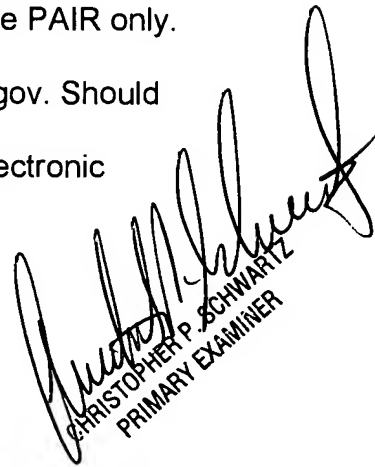 e PAIR only.
gov. Should
ectronic
CHRISTOPHER P. SCHWARTZ
PRIMARY EXAMINER